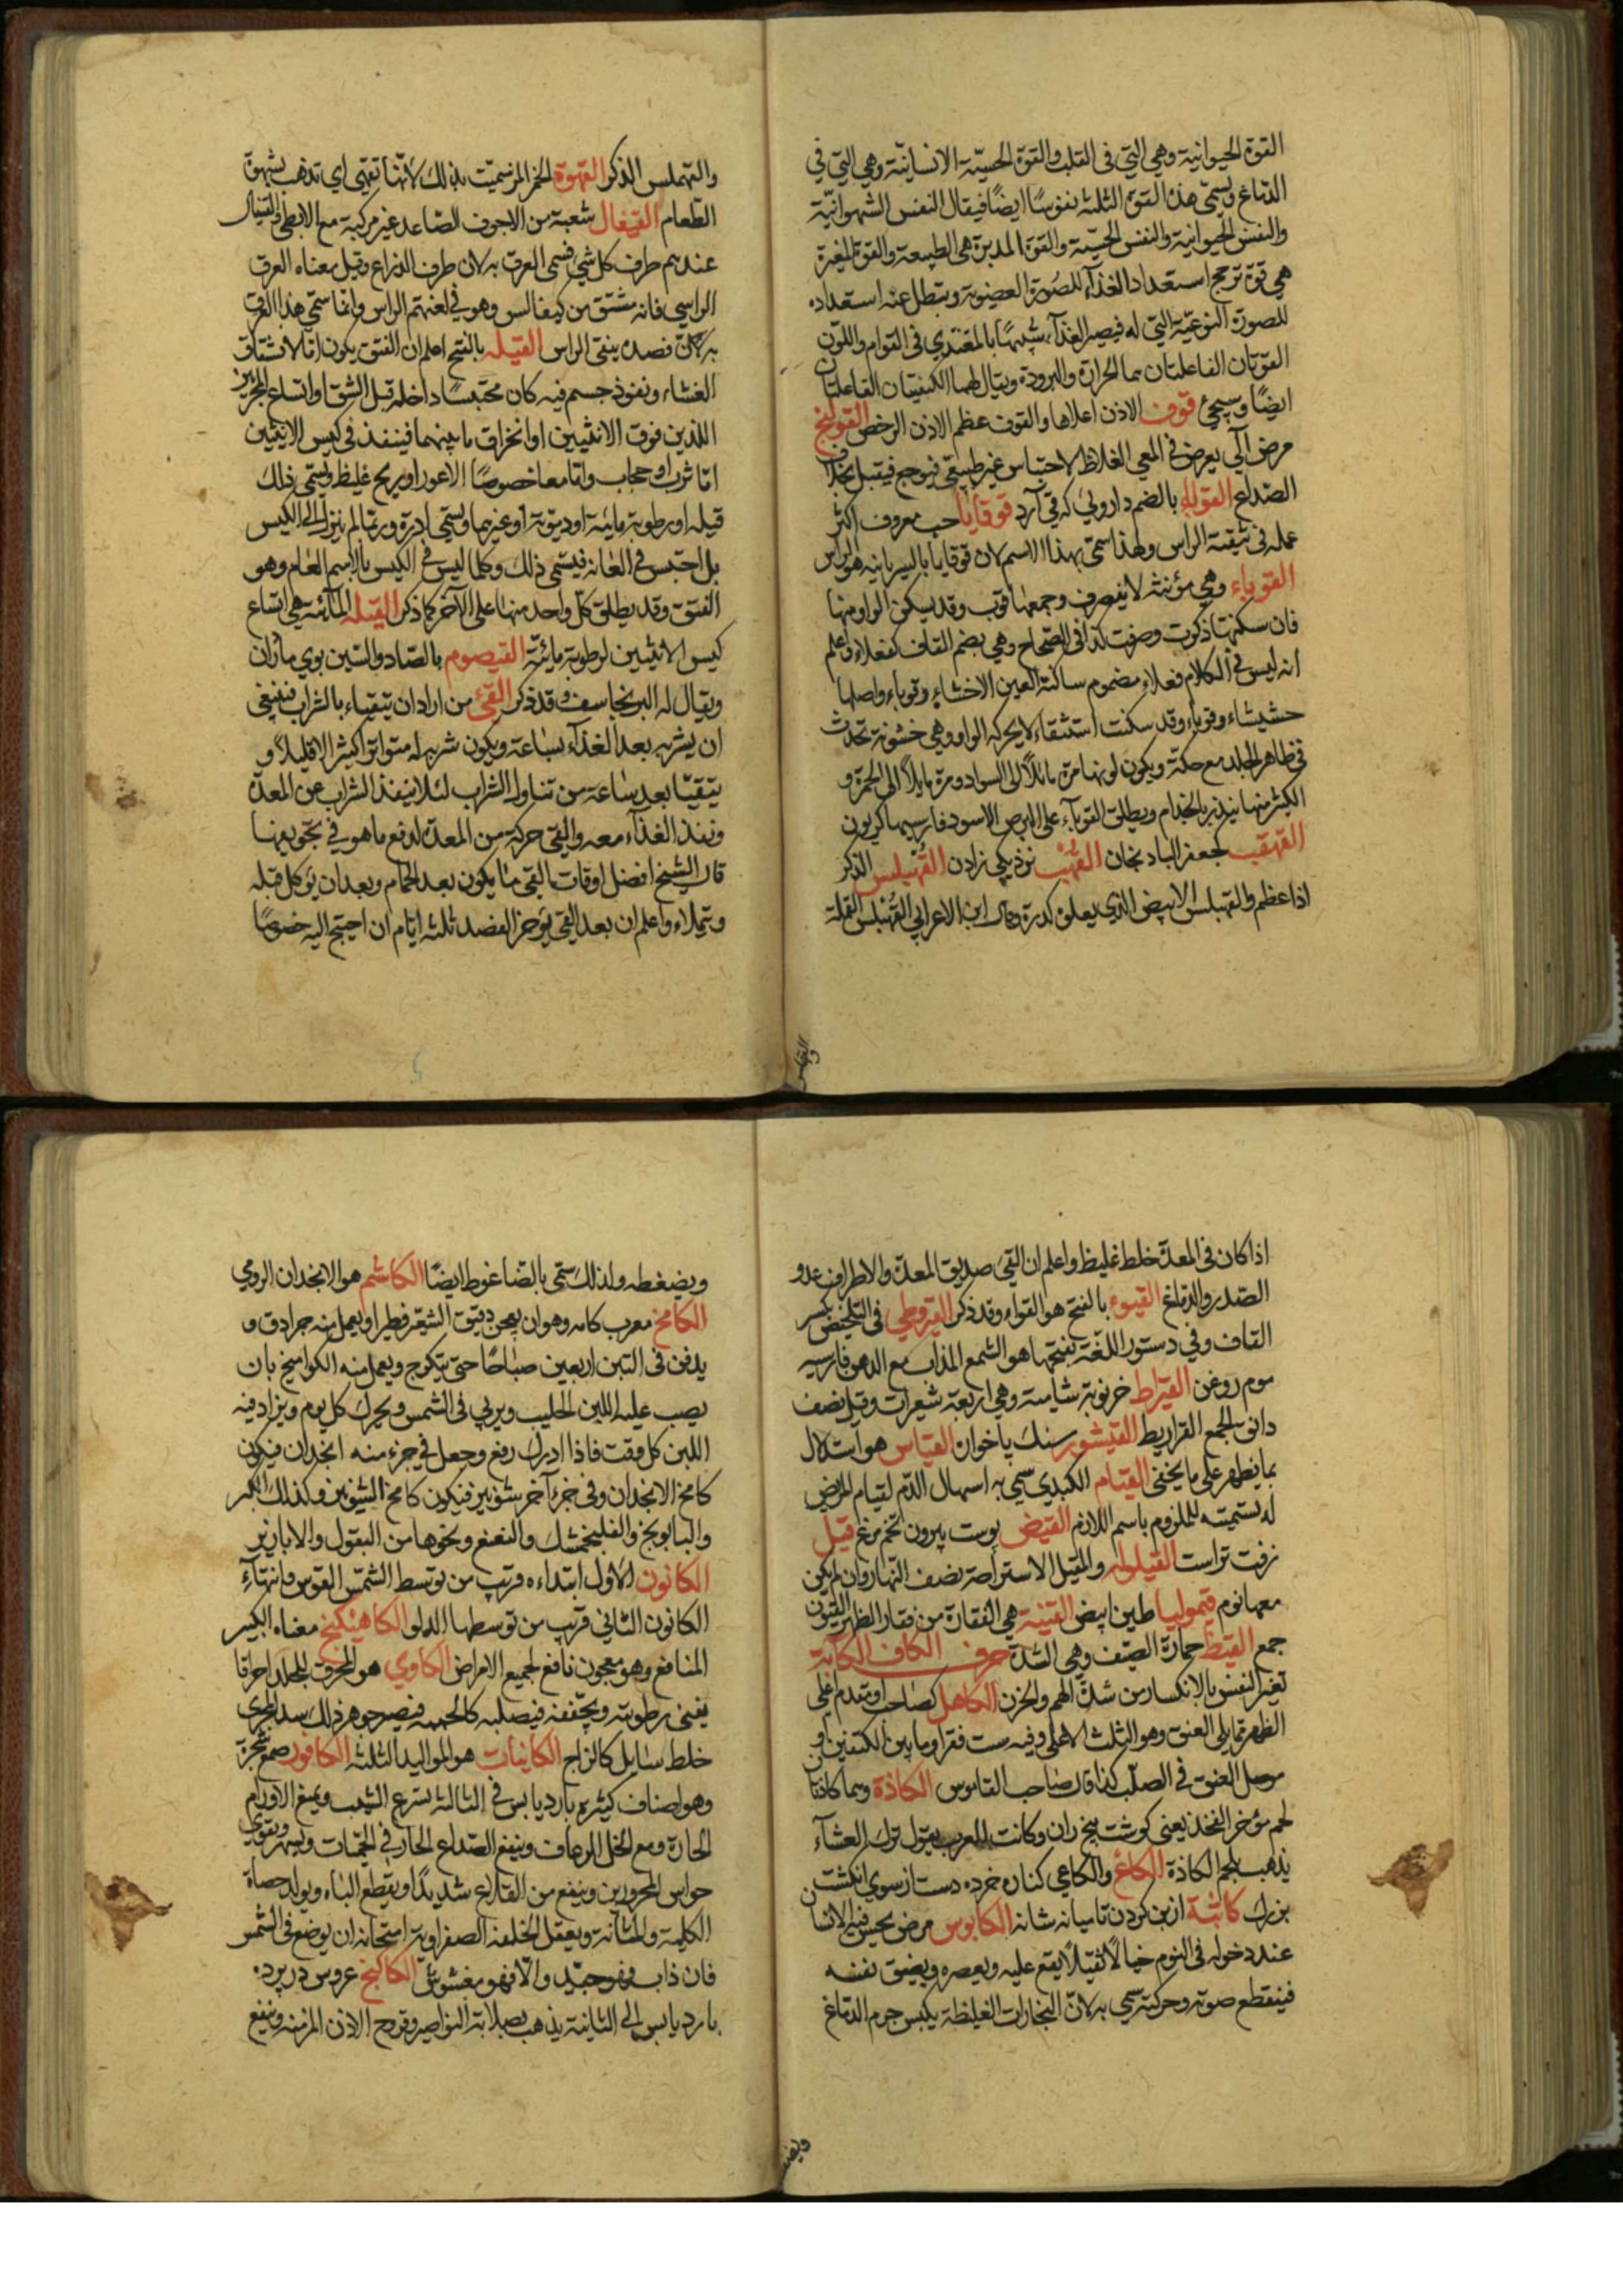 القوة الحيوانية وهي التي في القلب والقوة الحسية الانسانية وهي التي في
الدماغ ويسمى هذه القوى الثلثة نفوسًا ايضًا فيقال النفس الشهوانية
والنفس الحيوانية والنفس الحسية والقوة المدبرة هي الطبيعة والقوة المغيرة
هي قوة ترجح استعداد الغذآء للصورة العضوية ويبطل عنه استعداده
للصورة النوعية التي له فيصير الغذآء شبيهًا بالمغتذي في القوام واللون
القوتان الفاعلتان هما الحرارة والبرودة ويقال لهما الكيفيتان الفاعلتان
ايضًا وسيجئ قوف الاذن اعلاها والقوف عظم الاذن الرخص القولنج
مرض آلي يعرض في المعي الغلاظ لاحتباس غير طبيعي فيوجع فيقبل بخلاف
الصداع القولاء بالضم داروئي كه قي آرد قوقايا حب معروف اكثر
عمله في تنقية الراس ولهذا سمي بهذا الاسم لان قوقايا بالسريانيه هو الراس
القوباء وهي مؤنثه لا ينصرف وجمعها قوب وقد يسكن الواو منها
فان سكنتها ذكرت وصرفت كذا في الصحاح وهي بضم القاف كفعلاء واعلم
انه ليس في الكلام فعلاء مضموم ساكنة العين الا خشاء وقوباء واصلها
خششاء وقوباء وقد سكنت استثقالا لحركة الواو وهي خشونة تحدث
في ظاهر الجلد مع حكة ويكون لونها مرة مائلاً الى السواد ومرة مايلاً الى الحمرة و
الكثير منها ينذر بالجذام ويطلق القوبآء على البرص الاسود فارسيها كريون
القهقب كجعفر الباذنجان القهب نزديكي زادن القهبلس الذكر
اذا عظم والقهبلس الابيض الذي يعلوه كدرة وقال ابن الاعرابي القهبلس القملة
والقهبلس
والقهبلس الذكر القهوة الخمر المرّ سميت بذلك لانها تقهى اي تذهب بشهوة
الطعام القيفال شعبة من الاجوف الصاعد غير مركبة مع الابطي والقيفال
عندهم طرف كل شئ فسمي العرق به لان طرف الذراع وقيل معناه العرق
الراسي فانه مشتق من كيفالس وهو في لغتهم الراس وانما سمي هذا العرق
به لان فصده ينقي الراس القيله بالفتح اعلم ان الفتق يكون اما لانشقاق
الغشاء ونفوذ جسم فيه كان محتبسًا داخله قبل الشق او اتساع المجريين
اللذين فوق الانثيين او انخراق ما بينهما فينفذ في كيس الانثيين
اما ثرب او حجاب واما معا خصوصًا الاعور او ريح غليظ ويسمى ذلك
قيله او رطوبة مائية او دموية او غيرهما ويسمى ادرة وربما لم ينزل الى الكيس
بل احتبس في العانة فيسمى ذلك وكلما ليس في الكيس بالاسم العام وهو
الفتق وقد يطلق كل واحد منها على الآخر كما ذكر القيلة المائية هي اتساع
كيس الانثيين لرطوبة مائية القيصوم بالصاد والسين بوي مادران
ويقال له البرنجاسف وقد ذكر القئ من اراد ان يتقياء بالشراب فينبغي
ان يشربه بعد الغذآء بساعة ويكون شربه له متواترا كثيرا لا قليلاً و
يتقيا بعد ساعة من تناول الشراب لئلا ينفذ الشراب عن المعدة
وينفذ الغذآء معه والقئ حركة من المعدة لدفع ما هو في تجويفها
قال الشيخ افضل اوقات القئ ما يكون بعد الحمام وبعد ان يؤكل قبله
ويتملاء واعلم ان بعد القئ يؤخر الفصد ثلثة ايام ان احتيج اليه خصوصًا
اذا كان في المعدة خلط غليظ واعلم ان القئ صديق المعدة والاطراف عدو
الصدر والدماغ القيوء بالفتح هو القواء وقد ذكر القيروطي في التلخيص بكسر
القاف وفي دستور اللغة بفتحها هو الشمع المذاب مع الدهن فارسيه
موم روغن القيراط خرنوبة شامية وهي اربعة شعيرات وقيل نصف
دانق الجمع القراريط القيشور سنك ياخوان القياس هو استدلال
بما يظهر على ما يخفى القيام الكبدي سمي به اسهال الدم لقيام المريض
له تسمية للملزوم باسم اللازم القيض پوست بيرون تخم مرغ قيل
زفت تر است القيلولة والمقيل الاستراحة نصف النهار وان لم يكن
معها نوم قيموليا طين ابيض القينة هي الفقارة من فقار الظهر القيون
جمع القيظ حمارة الصيف وهي الشدة حرف الكاف الكآبة
تغير النفس بالانكسار من شدة الهم والحزن الكاهل كصاحب او مقدم اعلى
الظهر مما يلي العنق وهو الثلث الاعلى وفيه ست فقر او ما بين الكتفين او
موصل العنق في الصلب كذا قال صاحب القاموس الكاذة وهما كاذتان
لحم مؤخر الفخذ يعني كوشت بيخ ران وكانت العرب يقول ترك العشآء
يذهب بلحم الكاذة الكاع والكاعي كناره خرده دست از سوي انكشت
بزرك كاثبة از بن كردن تا ميانه شانه الكابوس مرض يحس فيه الانسان
عند دخوله في النوم خيالاً ثقيلاً يقع عليه ويعصره ويضيق نفسه
فينقطع صوته وحركته سمي به لان البخارات الغليظة يكبس جرم الدماغ
ويضغطه
ويضغطه ولذلك سمي بالضاغوط ايضًا الكاشم هو الانجدان الرومي
الكامخ معرب كامه وهو ان يعجن دقيق الشعير فطيرا ويعمل منه جرادق و
يدفن في التبن اربعين صباحًا حتى يتكرج ويعمل منه الكواميخ بان
يصب عليه اللبن الحليب ويربى في الشمس ويحرك كل يوم ويزاد فيه
اللبن كل وقت فاذا ادرك رفع وجعل في جزء منه انجدان فيكون
كامخ الانجدان وفي جزء آخر شونيز فيكون كامخ الشونيز وكذلك الكبر
والبابونج والفلنجمشك والنعنع ونحوها من البقول والابازير
الكانون الاول ابتداءه قريب من توسط الشمس القوس وانتهآء
الكانون الثاني قريب من توسطها الدلو الكاهنكبخ معناه الكبير
المنافع وهو معجون نافع لجميع الامراض الكاوي هو المحرق للجلد احراقا
يفنى رطوبته ويجففه فيصلبه كالحممه فيصير جوهر ذلك سد المجرى
خلط سايل كالزاج الكاينات هو المواليد الثلثة الكافور صمغ شجرة
وهو اصناف كثيره بارد يابس في الثالثة يسرع الشيب ويمنع الاورام
الحارة ومع الخل الرعاف وينفع الصداع الحار في الحميات ويسهر ويقوي
حواس المحرورين وينفع من القلاع شديدًا ويقطع الباه ويولد حصاة
الكلية والمثانة ويعقل الخلفة الصفراوية امتحانه ان يوضع في الشمس
فان ذاب فهو جيد والا فهو مغشوش الكاكنج عروس در پرده
بارد يابس الى الثانية يذهب بصلابة النواصير وقروح الاذن المزمنة وينفع